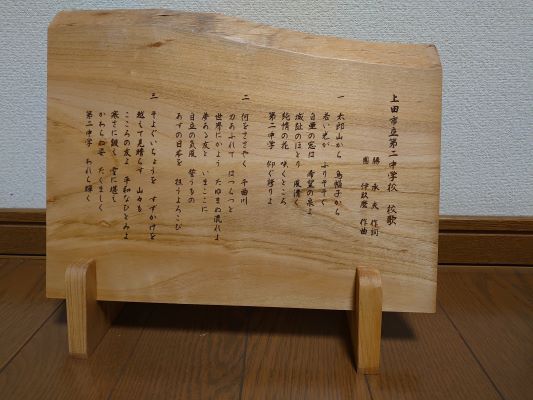 上田市立第二中学校 校歌
勝 承夫 作詞
團 伊玖磨 作曲
一 太郎山から 烏帽子から
若い光が ふりそそぐ
自亜の窓は 希望の泉よ
城趾のほとり 風清く
純情の花 咲くところ
第二中学 仰ぐ誇りよ
二 何をささやく 千曲川
力あふれて はつらつと
世界にかよう たゆまぬ流れよ
夢ある友と いまここに
自立の気風 誓うもの
あすの日本を 担うよろこび
三 そよぐいちょうを すずかけを
越えて見晴らす 山々も
こころの友よ 平和なながめよ
寒さに鍛く 雪に堪え
かわらぬ姿 たくましく
第二中学 われら輝く